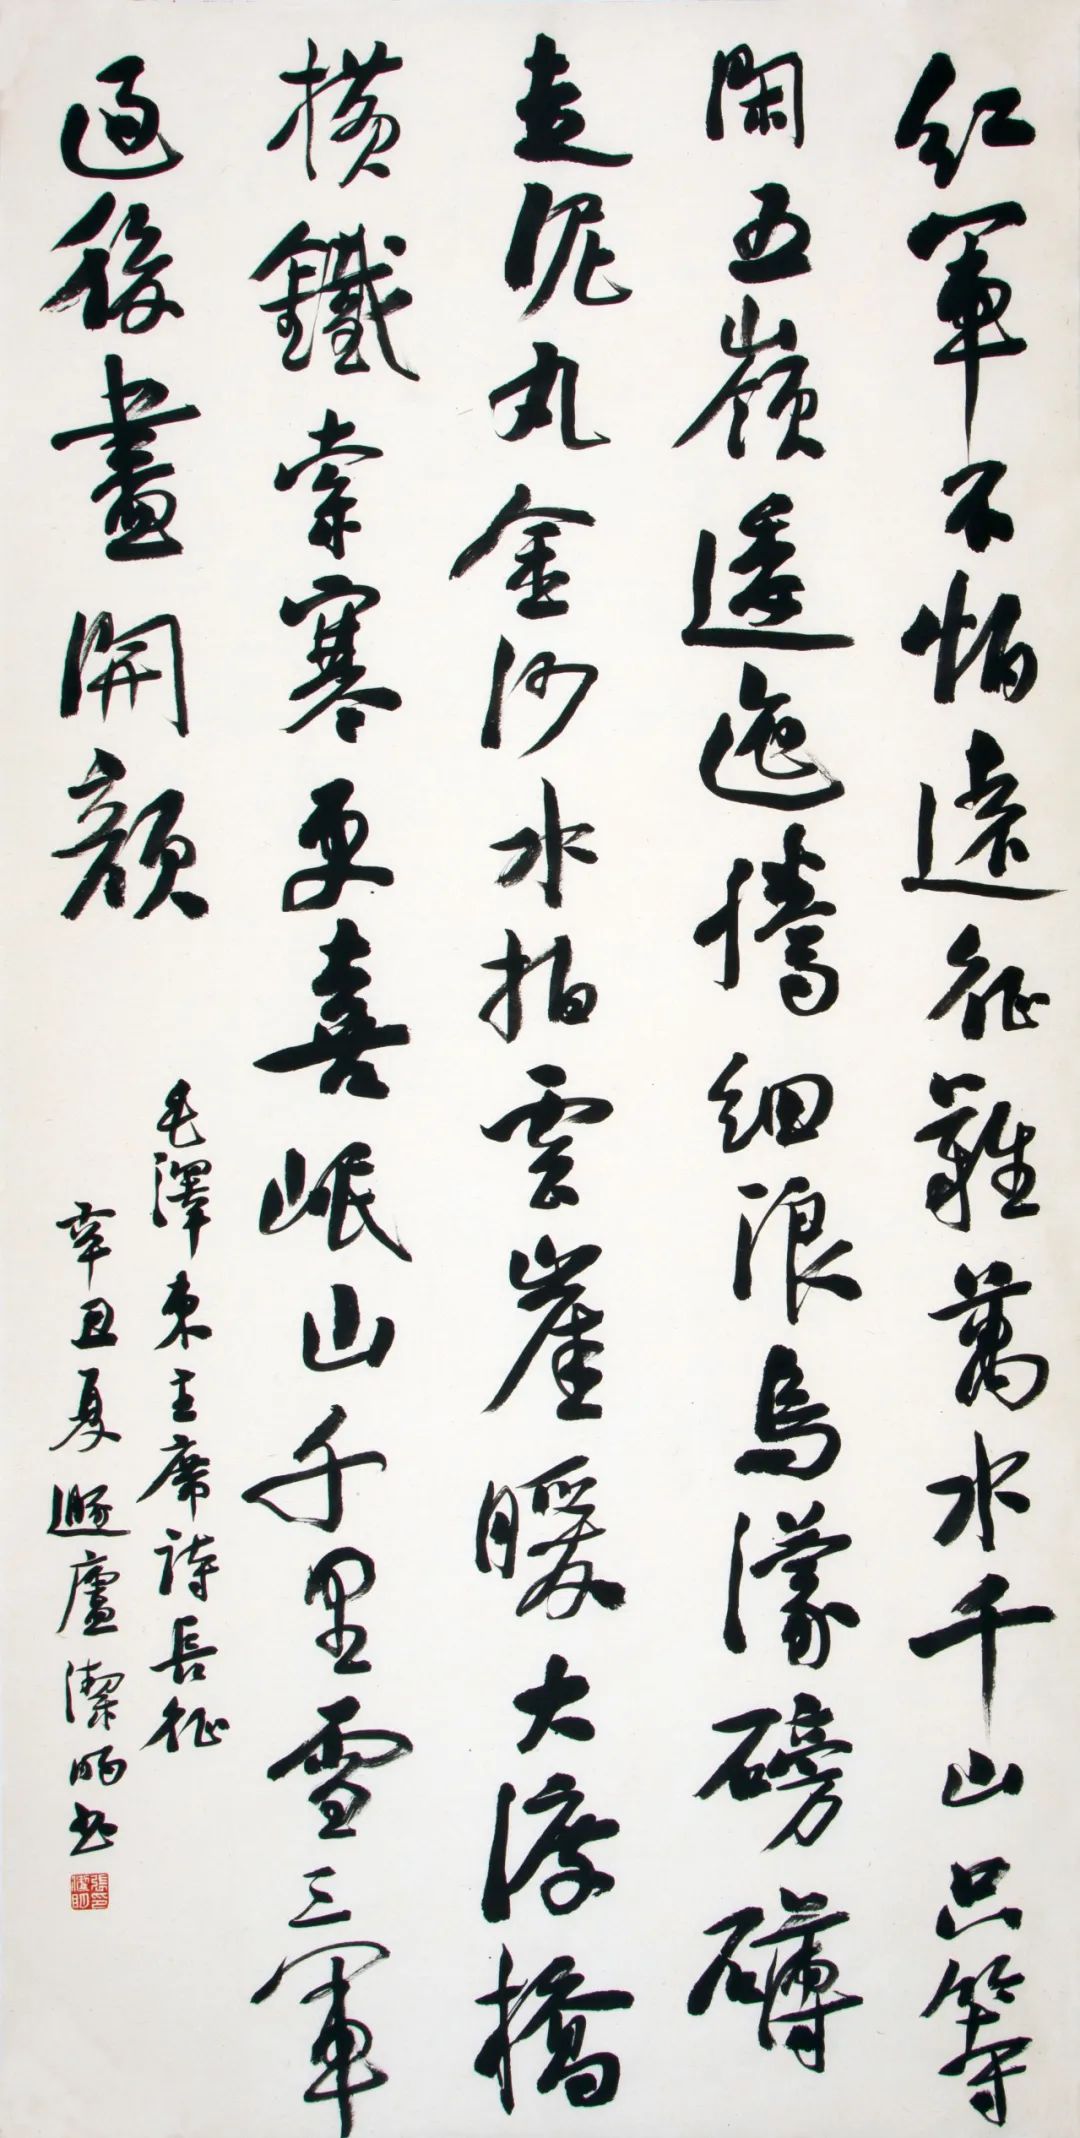 紅軍不怕遠征難萬水千山只等
閑五嶺逶迤騰細浪烏濛磅礴
走泥丸金沙水拍雲崖暖大渡橋
橫鐵索寒更喜岷山千里雪三軍
過後盡開顏
毛澤東主席詩長征
辛丑夏遯廬潔明書